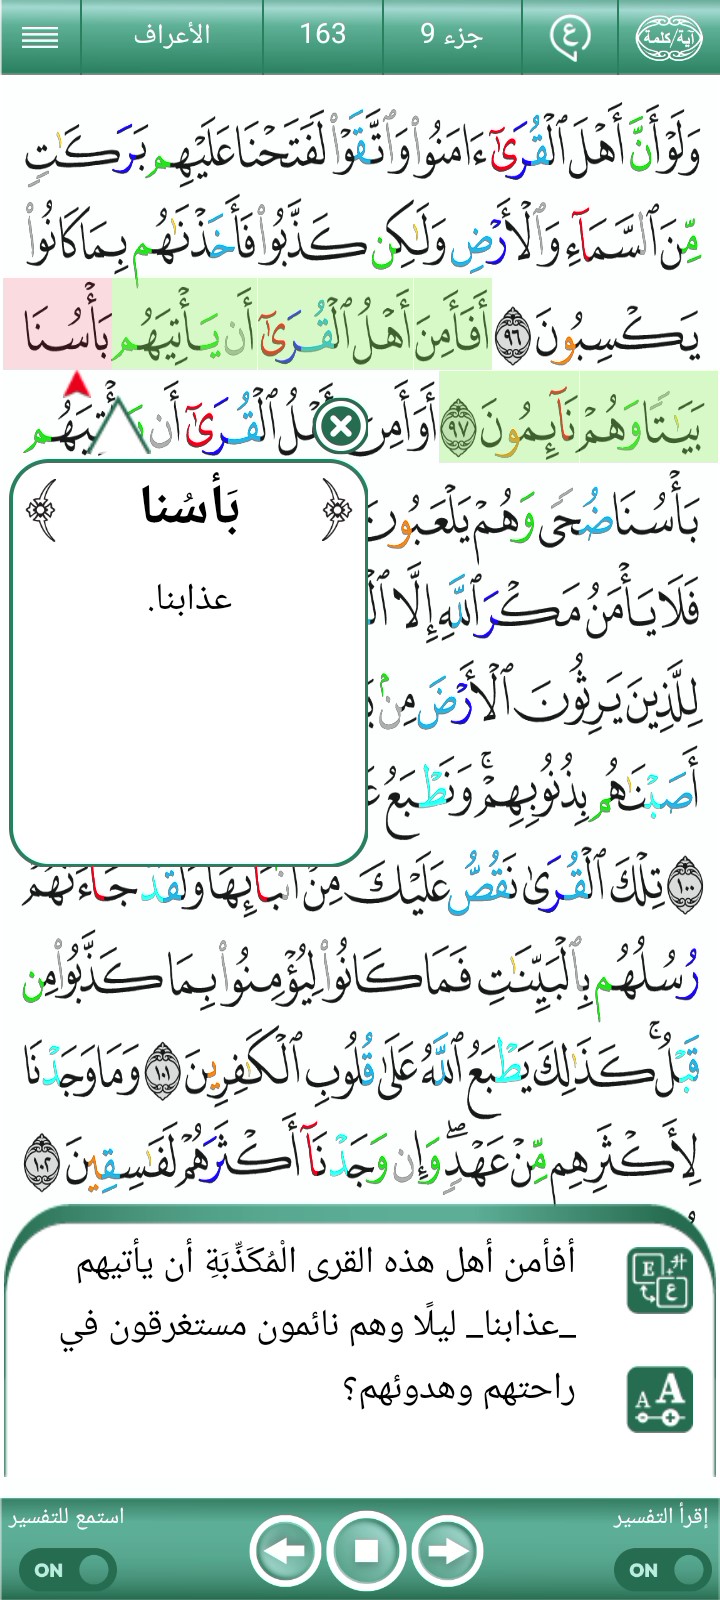 الأعراف
163
جزء 9
ع
آية/كلمة
وَلَوْ أَنَّ أَهْلَ ٱلْقُرَىٰٓ ءَامَنُوا۟ وَٱتَّقَوْا۟ لَفَتَحْنَا عَلَيْهِم بَرَكَٰتٍ
مِّنَ ٱلسَّمَآءِ وَٱلْأَرْضِ وَلَٰكِن كَذَّبُوا۟ فَأَخَذْنَٰهُم بِمَا كَانُوا۟
يَكْسِبُونَ ٩٦ أَفَأَمِنَ أَهْلُ ٱلْقُرَىٰٓ أَن يَأْتِيَهُم بَأْسُنَا
بَيَٰتًا وَهُمْ نَآئِمُونَ ٩٧ أَوَأَمِنَ أَهْلُ ٱلْقُرَىٰٓ أَن يَأْتِيَهُم
بَأْسُنَا ضُحًى وَهُمْ يَلْعَبُونَ
فَلَا يَأْمَنُ مَكْرَ ٱللَّهِ إِلَّا
لِلَّذِينَ يَرِثُونَ ٱلْأَرْضَ مِنۢ
أَصَبْنَٰهُم بِذُنُوبِهِمْ ۚ وَنَطْبَعُ
١٠٠ تِلْكَ ٱلْقُرَىٰ نَقُصُّ عَلَيْكَ مِنْ أَنۢبَآئِهَا وَلَقَدْ جَآءَتْهُمْ
رُسُلُهُم بِٱلْبَيِّنَٰتِ فَمَا كَانُوا۟ لِيُؤْمِنُوا۟ بِمَا كَذَّبُوا۟ مِن
قَبْلُ ۚ كَذَٰلِكَ يَطْبَعُ ٱللَّهُ عَلَىٰ قُلُوبِ ٱلْكَٰفِرِينَ ١٠١ وَمَا وَجَدْنَا
لِأَكْثَرِهِم مِّنْ عَهْدٍ ۖ وَإِن وَجَدْنَآ أَكْثَرَهُمْ لَفَٰسِقِينَ ١٠٢
بَأسُنا
عذابنا.
أفأمن أهل هذه القرى الْمُكَذِّبَةِ أن يأتيهم
_عذابنا_ ليلًا وهم نائمون مستغرقون في
راحتهم وهدوئهم؟
E ع
A A
استمع للتفسير
ON
إقرأ التفسير
ON